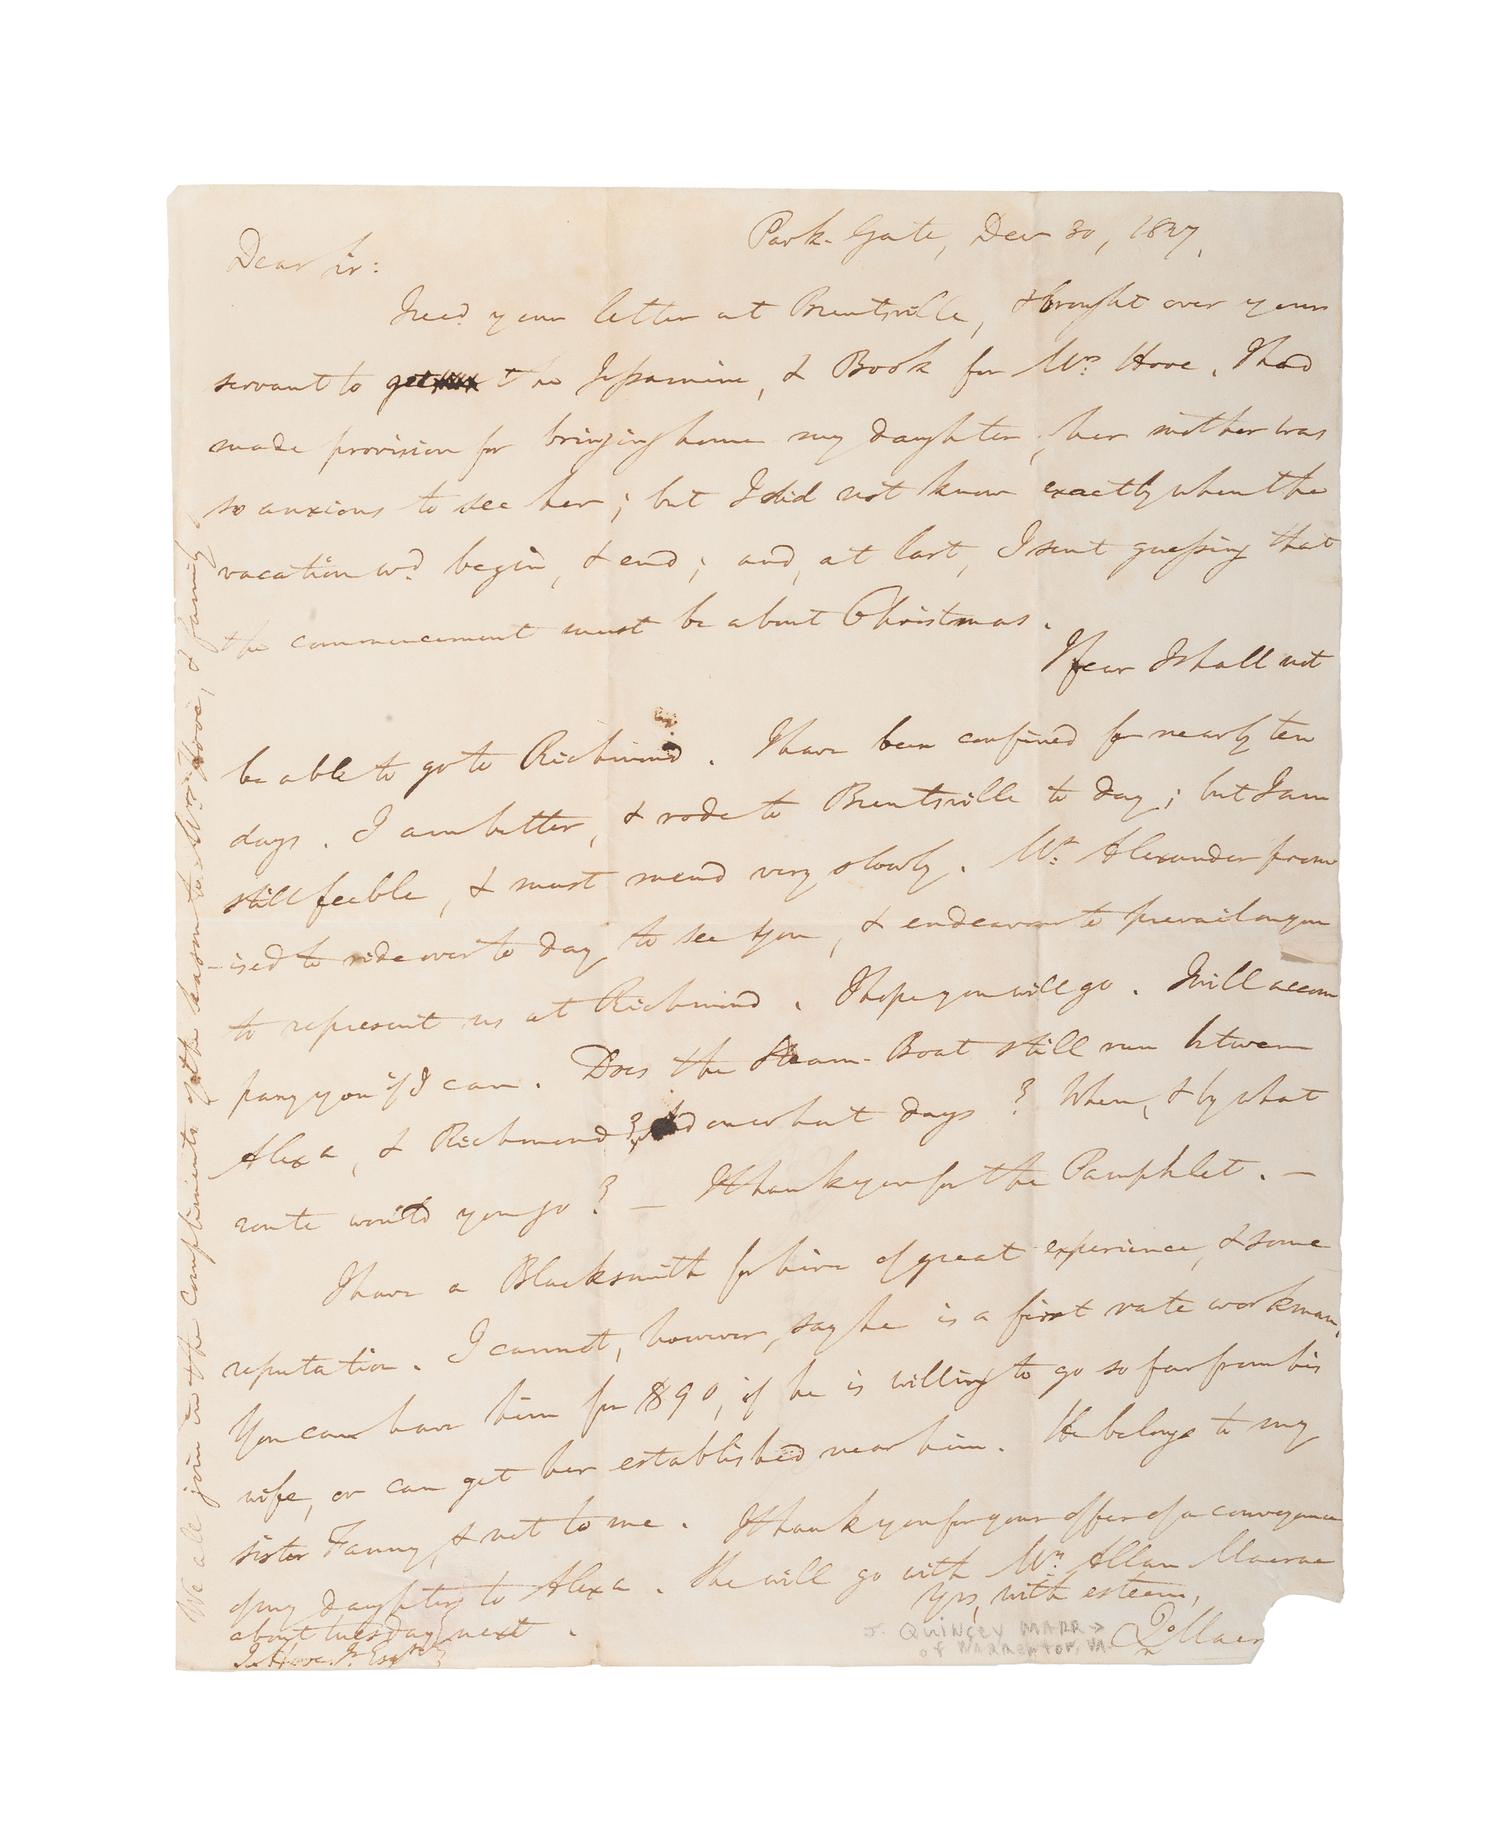 Park-Gate, Dec 30, 1827,
Dear Sir:
I recd. your letter at Brentsville, & brought over your
servant to get the Jessamine, & Book for Mrs. Hove. I had
made provision for bringing home my daughter, her mother was
so anxious to see her; but I did not know exactly when the
vacation wd. begin, & end; and, at last, I sent guessing that
the commencement must be about Christmas.
I fear I shall not
be able to go to Richmond. I have been confined for nearly ten
days. I am better, & rode to Brentsville to day; but I am
still feeble, & must mend very slowly. Mr. Alexander prom
ised to ride over to day to see you, & endeavour to prevail on you
to represent us at Richmond. I hope you will go. I will accom
pany you if I can. Does the Steam-Boat still run between
Alexa, & Richmond? and on what days? When, & by what
route would you go? — I thank you for the Pamphlet. —
I have a Blacksmith for hire of great experience, & some
reputation. I cannot, however, say he is a first rate workman.
You can have him for $90, if he is willing to go so far from his
wife, or can get her established near him. He belongs to my
sister Fanny, & not to me. I thank you for your offer of a conveyance
of my daughter to Alexa. She will go with Mrs. Allan Macrae
about tuesday next.
Yrs, with esteem,
Hove. Jr. Esqre
J. Quincey MARR →
of Warrenton, VA.
We all join in the compliments of the season to Mrs. Hove, & family